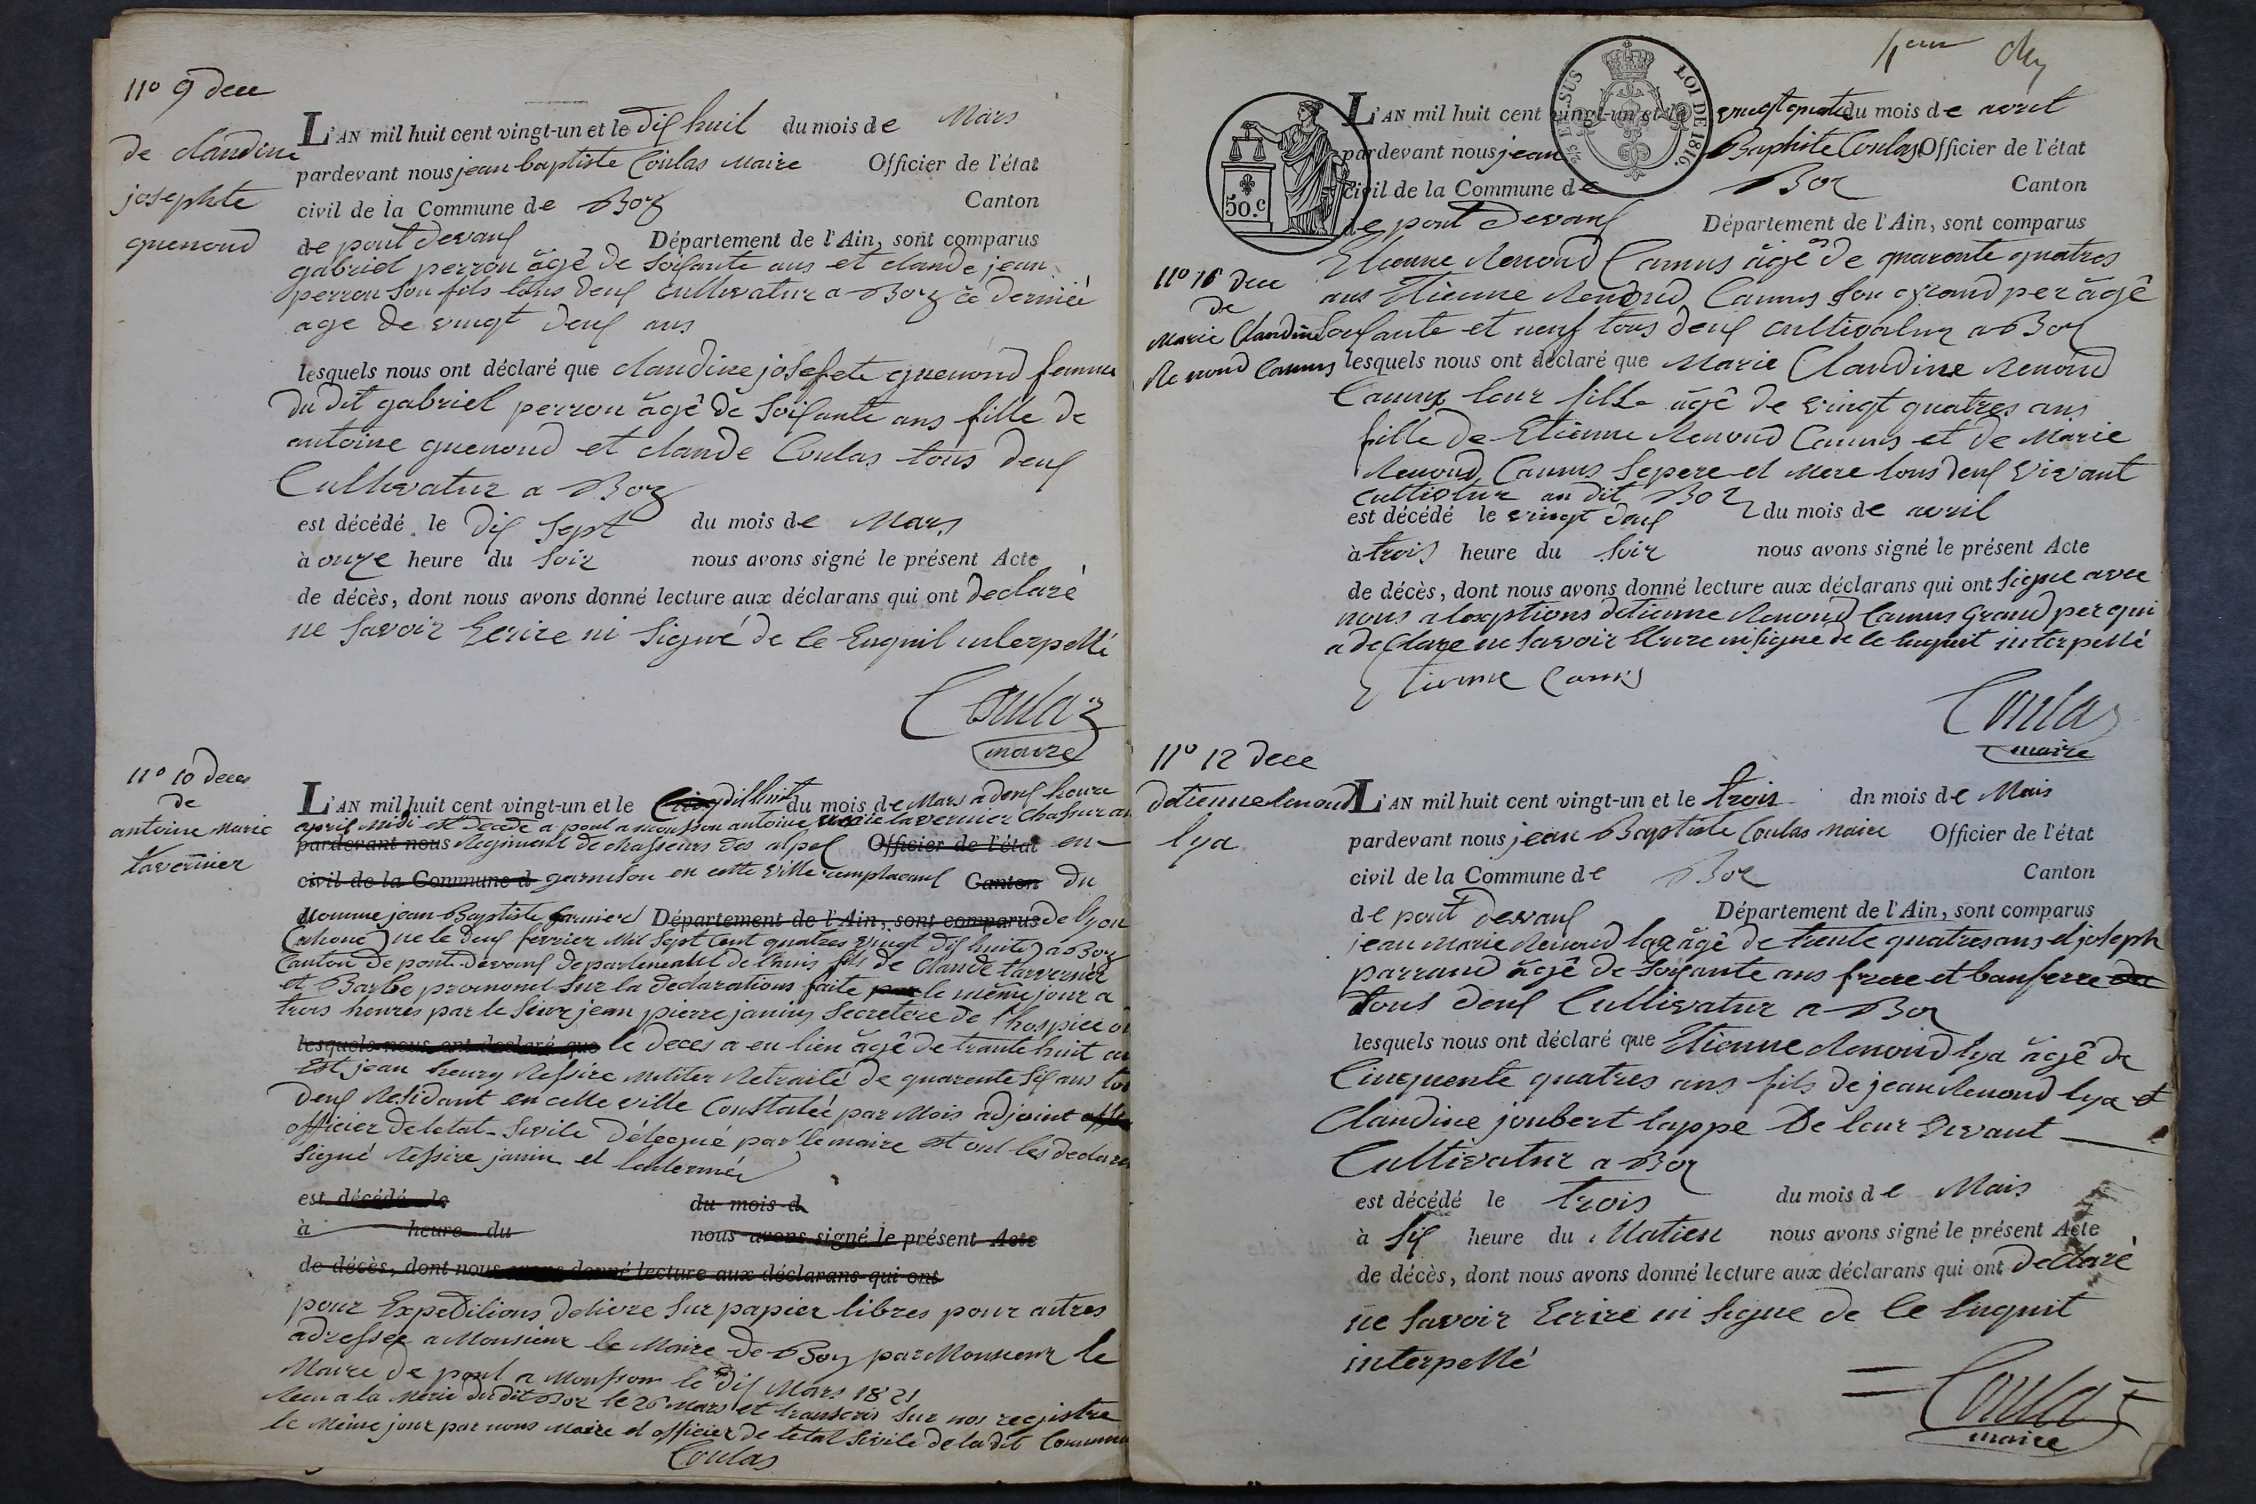 11° 9 dece
de claudine
josephte
guenoud
L'AN mil huit cent vingt-un et le dix huit du mois de Mars
pardevant nous jean baptiste Coulas Maire Officier de l'état
civil de la Commune de Boz Canton
de pont devaux Département de l'Ain, sont comparus
gabriel perron âgê de Soixante ans et claude jean
perron son fils tous deux Cultivatur a Boz ce derniée
age de vingt deux ans
lesquels nous ont déclaré que claudine josefete guenoud femme
du dit gabriel perron âgê de Soixante ans fille de
antoine guenoud et claude Coulas tous deux
Cultivatur a Boz
est décédé le dix Sept du mois de Mars
à onze heure du Soir nous avons signé le présent Acte
de décès, dont nous avons donné lecture aux déclarans qui ont declaré
ne Savoir Ecrire ni Signé de ce Enquit interpellé
Coulaz
maire
11° 10 deces
de
antoine Marie
tavernier
L'AN mil huit cent vingt-un et le dix huit du mois de Mars a deux heure
april Midi est decede a pont a mousson antoine Marie tavernier Chassur au
pardevant nous Regiment de chasseurs des alpes Officier de l'état en
civil de la Commune d garnison en cette ville remplacant Canton du
Nomme jean Baptiste garnier Département de l'Ain, sont comparus de lyon
(rhone) ne le deux fevrier Mil Sept Cent quatres vingt dix huite a Boz
Canton de pont devaux departement de l'ain fils de Claude tavernier
et Barbe promonet Sur la declarations faite par le même jour a
trois heures par le Sieur jean pierre janin Secretere de l'hospice ou
lesquels nous ont déclaré que le deces a eu lieu âgê de trante huit an
Est jean henry Ressire Militer Retraité de quarente Six ans tou
deux Residant en cette ville Constatée par Mois adjoint
officier de letat Sivile délegué par le maire et ont les declara
Signé Ressire janin et
est décédé le du mois d
à heure du nous avons signé le présent Acte
de décès, dont nous avons donné lecture aux déclarans qui ont
pour Expeditions delivre Sur papier libres pour autres
adressee a Monsieur le Maire de Boz par Monsieur le
Maire de pont a Mousson le dix Mars 1821
Recu a la Merie du dit Boz le 26 Mars et transcris Sur nos registre
le Même jour par nous Maire et officier de letat Sivile de la dit Commune
Coulas
ET SUS
LOI DE 1816.
50.c
L'AN mil huit cent vingt-un et le vingt quatre du mois de avril
pardevant nous jean Baptiste Coulas Officier de l'état
civil de la Commune de Boz Canton
de pont devaux Département de l'Ain, sont comparus
11° 16 dece
de
Marie Claudine
Renoud Camus
Etienne Renoud Camus âgê de quarente quatres
ans Etienne Renoud Camus Son grand per âgê
Soixante et neuf tous deux cultivatur a Boz
lesquels nous ont déclaré que Marie Claudine Renoud
Camus leur fille âgê de vingt quatres ans
fille de Etienne Renoud Camus et de Marie
Renoud Camus Se pere et Mere tous deux vivant
cultivtur au dit Boz
est décédé le vingt deux du mois de avril
à trois heure du Soir nous avons signé le présent Acte
de décès, dont nous avons donné lecture aux déclarans qui ont Signe avec
nous a lexptions detienne Renoud Camus Grand per qui
a de Clare ne Savoir Ecrire ni Signe de ce Enquit interpellé
Etienne Camus
Coulas
maire
11° 12 dece
detienne Renoud
lya
L'AN mil huit cent vingt-un et le trois du mois de Mais
pardevant nous jean Baptiste Coulas Maire Officier de l'état
civil de la Commune de Boz Canton
de pont devaux Département de l'Ain, sont comparus
jean Marie Renoud âgê de trente quatres ans et joseph
parraud âgê de Soixante ans frere et bauferre
tous deux Cultivatur a Boz
lesquels nous ont déclaré que Etienne Renoud lya âgê de
Cinquente quatres ans fils de jean Renoud lya et
Claudine joubert lappe De leur vivant
Cultivatur a Boz
est décédé le trois du mois de Mais
à Six heure du Matien nous avons signé le présent Acte
de décès, dont nous avons donné lecture aux déclarans qui ont declaré
ne Savoir Ecrire ni Signe de ce Enquit
interpellé
Coulas
maire